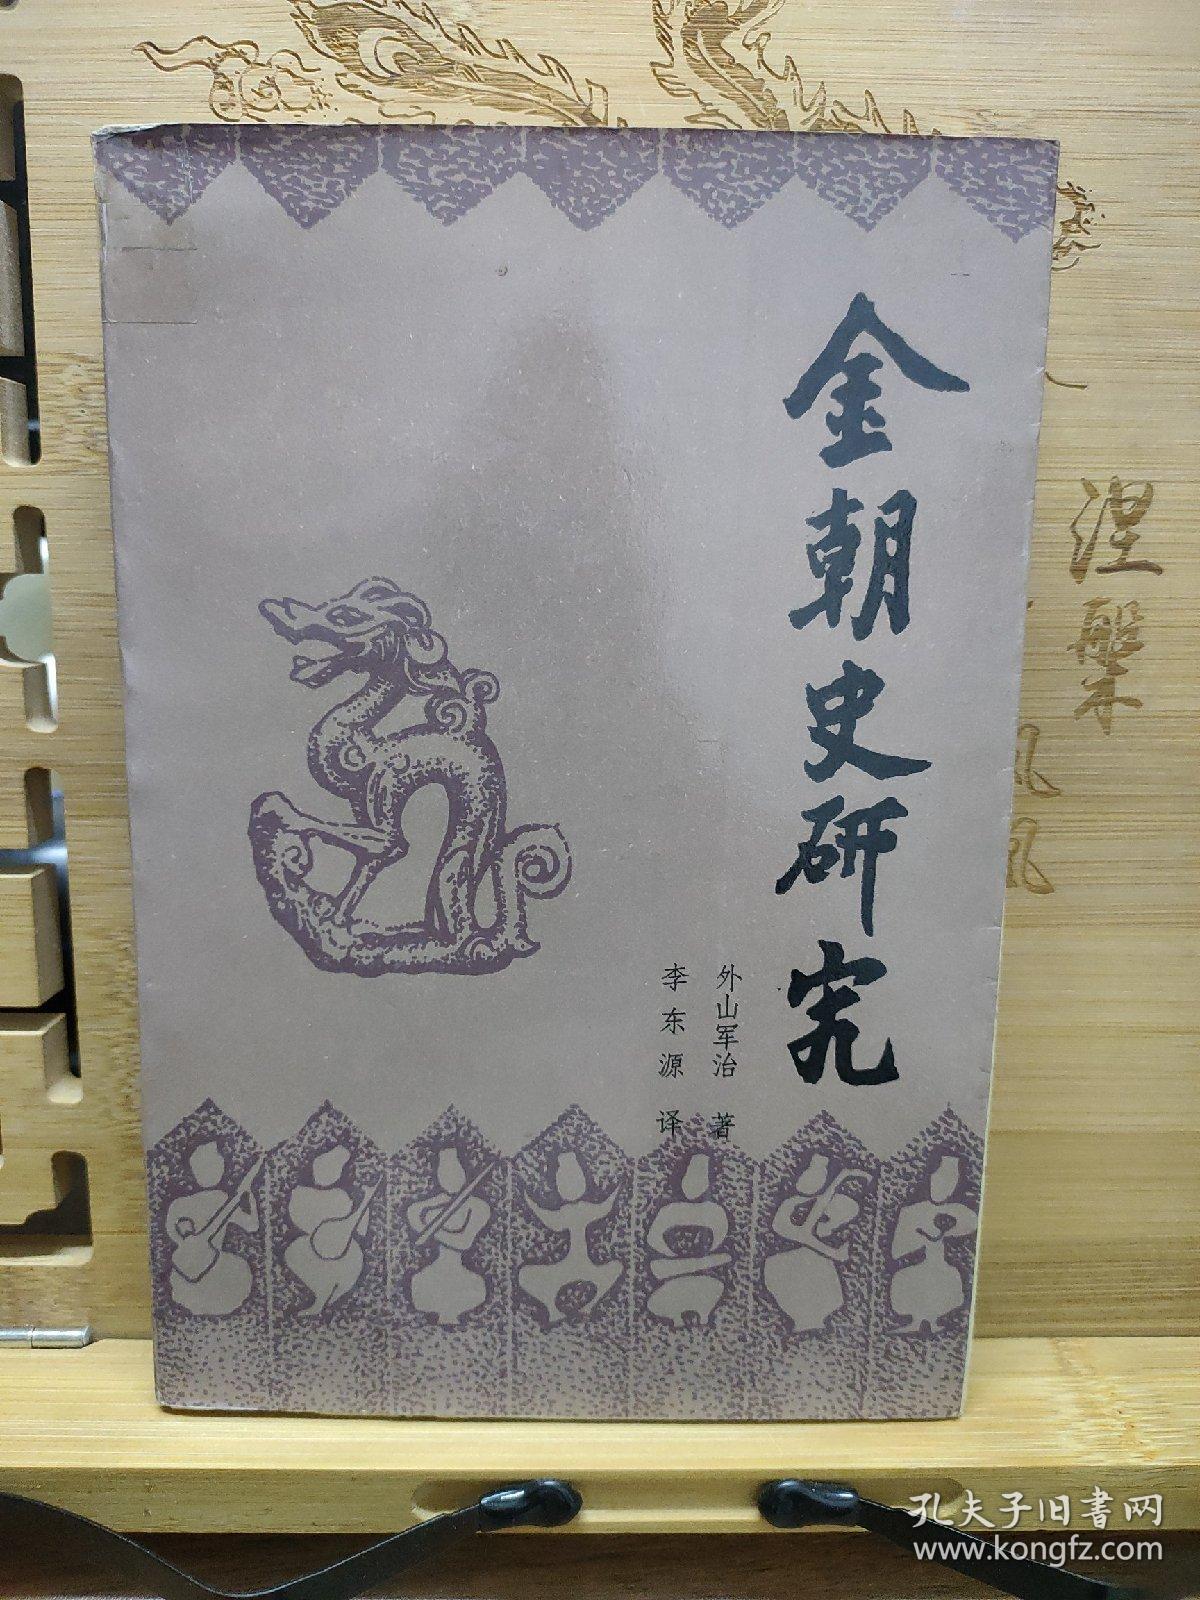 金朝史研究
外山军治 著
李东源 译
涅槃
孔夫子旧书网
www.kongfz.com